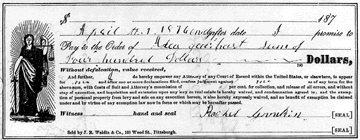 $ 187
April 23. 1876 one after date I promise to
Pay to the Order of Ada gearhart Sum of
Four hundred Dollars Dollars,
Without defalcation, value received,
And further, I do hereby empower any Attorney of any Court of Record within the United States, or elsewhere, to appear
for and after one or more declarations filed, confess judgment against as of any term for the
above sum, with Costs of Suit and Attorney's commission of per cent. for collection, and release of all errors, and without
stay of execution, and inquisition and extension upon any levy on real estate is hereby waived, and condemnation agreed to, and the exemp-
tion of personal property from levy and sale on any execution hereon, is also hereby expressly waived, and no benefit of exemption be claimed
under and by virtue of any exemption law now in force or which may be hereafter passed.
Witness hand and seal Rachel [SEAL]
Sold by J. R. Weldin & Co., 101 Wood St., Pittsburgh. [SEAL]